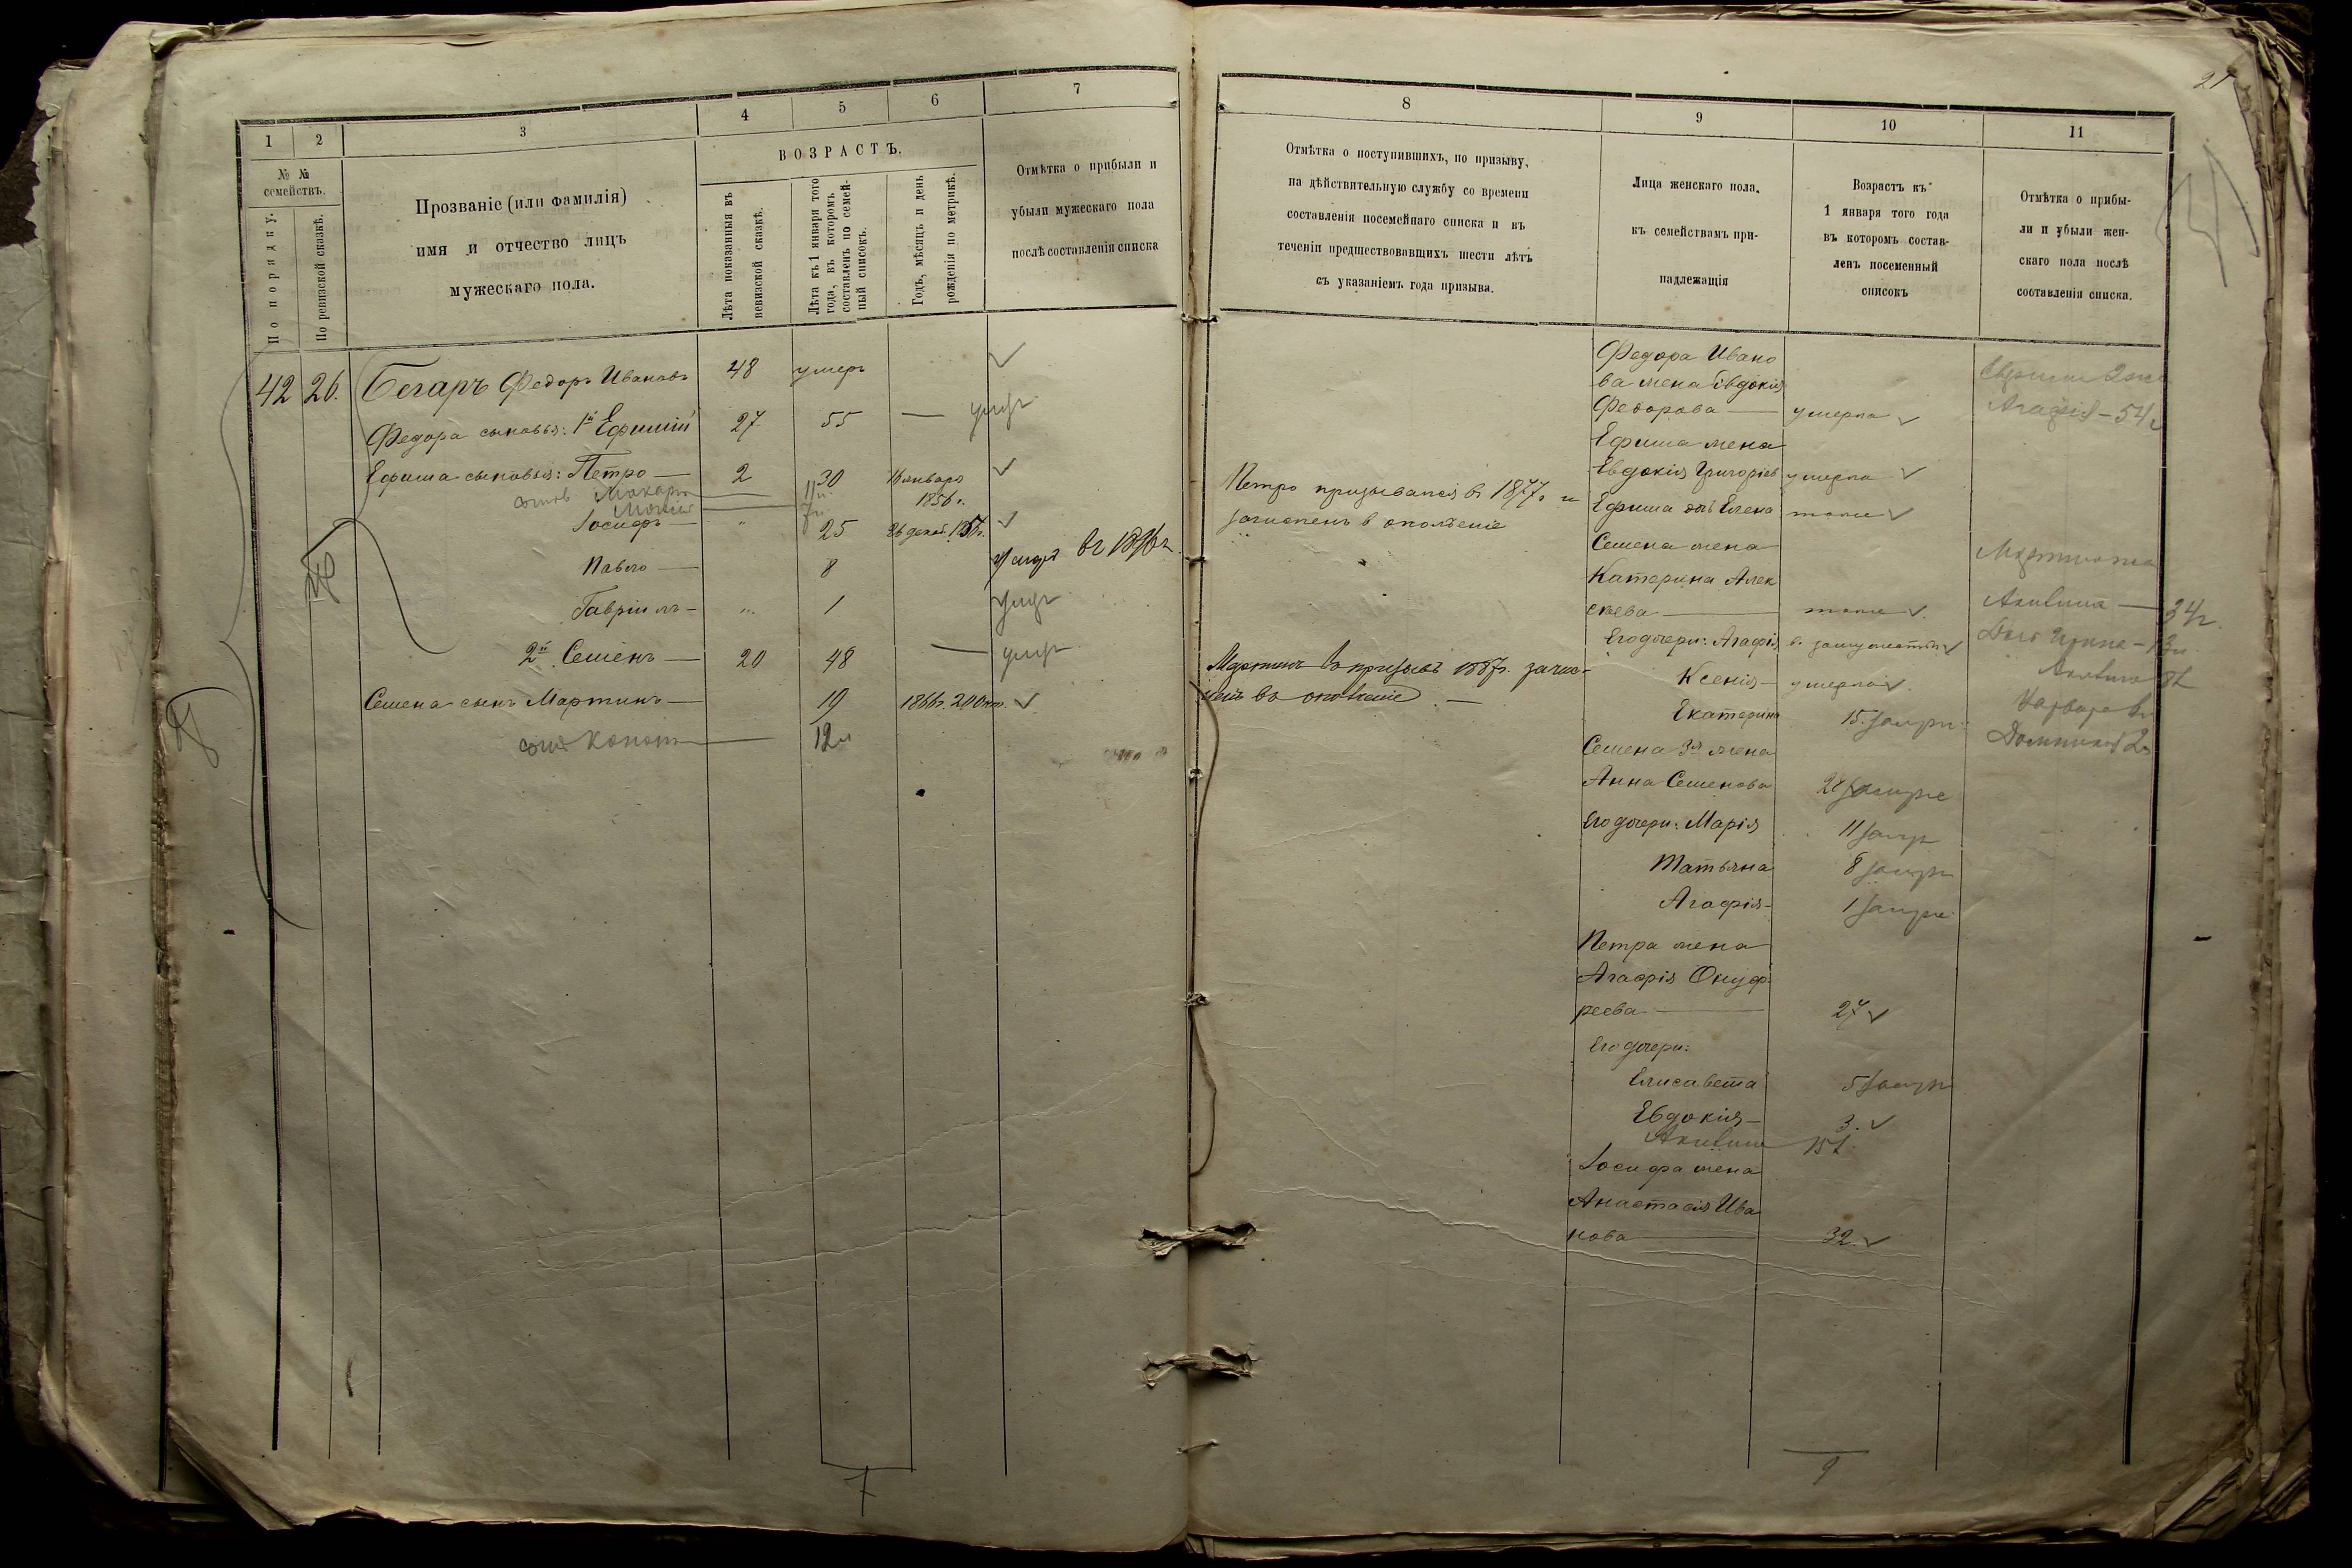 21
1
2
3
4
5
6
7
№ №
семействъ.
По порядку.
По ревизской сказкѣ.
Прозваніе (или фамилія)
имя и отчество лицъ
мужескаго пола.
ВОЗРАСТЪ.
Лѣта показанныя въ
ревизской сказкѣ.
Лѣта къ 1 января того
года, въ которомъ
составленъ по семей-
ный списокъ.
Годъ, мѣсяцъ и день
рожденія по метрикѣ.
Отмѣтка о прибыли и
убыли мужескаго пола
послѣ составленія списка
42 26. Бегаръ Федоръ Ивановъ 48 умеръ
Федора сыновья: 1й Ефимій 27 55 — умеръ
Ефима сыновья: Петро — 2 30 16 января
1856 г.
сынъ Макаръ 11 л.
7 л.
Іосифъ — " 25 26 декаб. 1857 г.
Павло — 8 умеръ въ 1896 г.
Гавріилъ — " 1 умеръ
2й Семенъ — 20 48 — умеръ
Семена сынъ Мартинъ — 19 1866 г. 20 Окт.
сынъ 12 л
7
8
9
10
11
Отмѣтка о поступившихъ, по призыву,
на дѣйствительную службу со времени
составленія посемейнаго списка и въ
теченіи предшествовавщихъ шести лѣтъ
съ указаніемъ года призыва.
Лица женскаго пола.
къ семействамъ при-
надлежащія
Возрастъ къ
1 января того года
въ которомъ состав-
ленъ посеменный
списокъ
Отмѣтка о прибы-
ли и убыли жен-
скаго пола послѣ
составленія списка.
Петро призывался въ 1877 г. и
зачисленъ в ополченіе
Мартинъ въ призывъ 1887 г. зачис-
ленъ въ ополченіе. —
Федора Ивано
ва жена Евдокія
Федорова — умерла
Агафія — 54 г
Ефима жена
Евдокія Григоріев умерла
Ефима доч Елена тоже
Семена жена
Катерина Алек
сѣева — тоже
Его дочери: Агафія в замужествѣ
Ксенія — умерла
Екатерина 15. замуж
Семена 3я жена
Анна Семенова 28 замуже
Его дочери: Марія 11 замуж
Татьяна 8 замуж
Агафія — 1 замуже
Петра жена
Агафія Онуф
реева — 27
Его дочери:
Елисавета 5 замуж
Евдокія — 3.
Акилина 15 л.
Іосифа жена
Анастасія Ива
нова — 32.
Мартина жена
Акилина — 34 г.
Акилина 8 л
Варвара
9